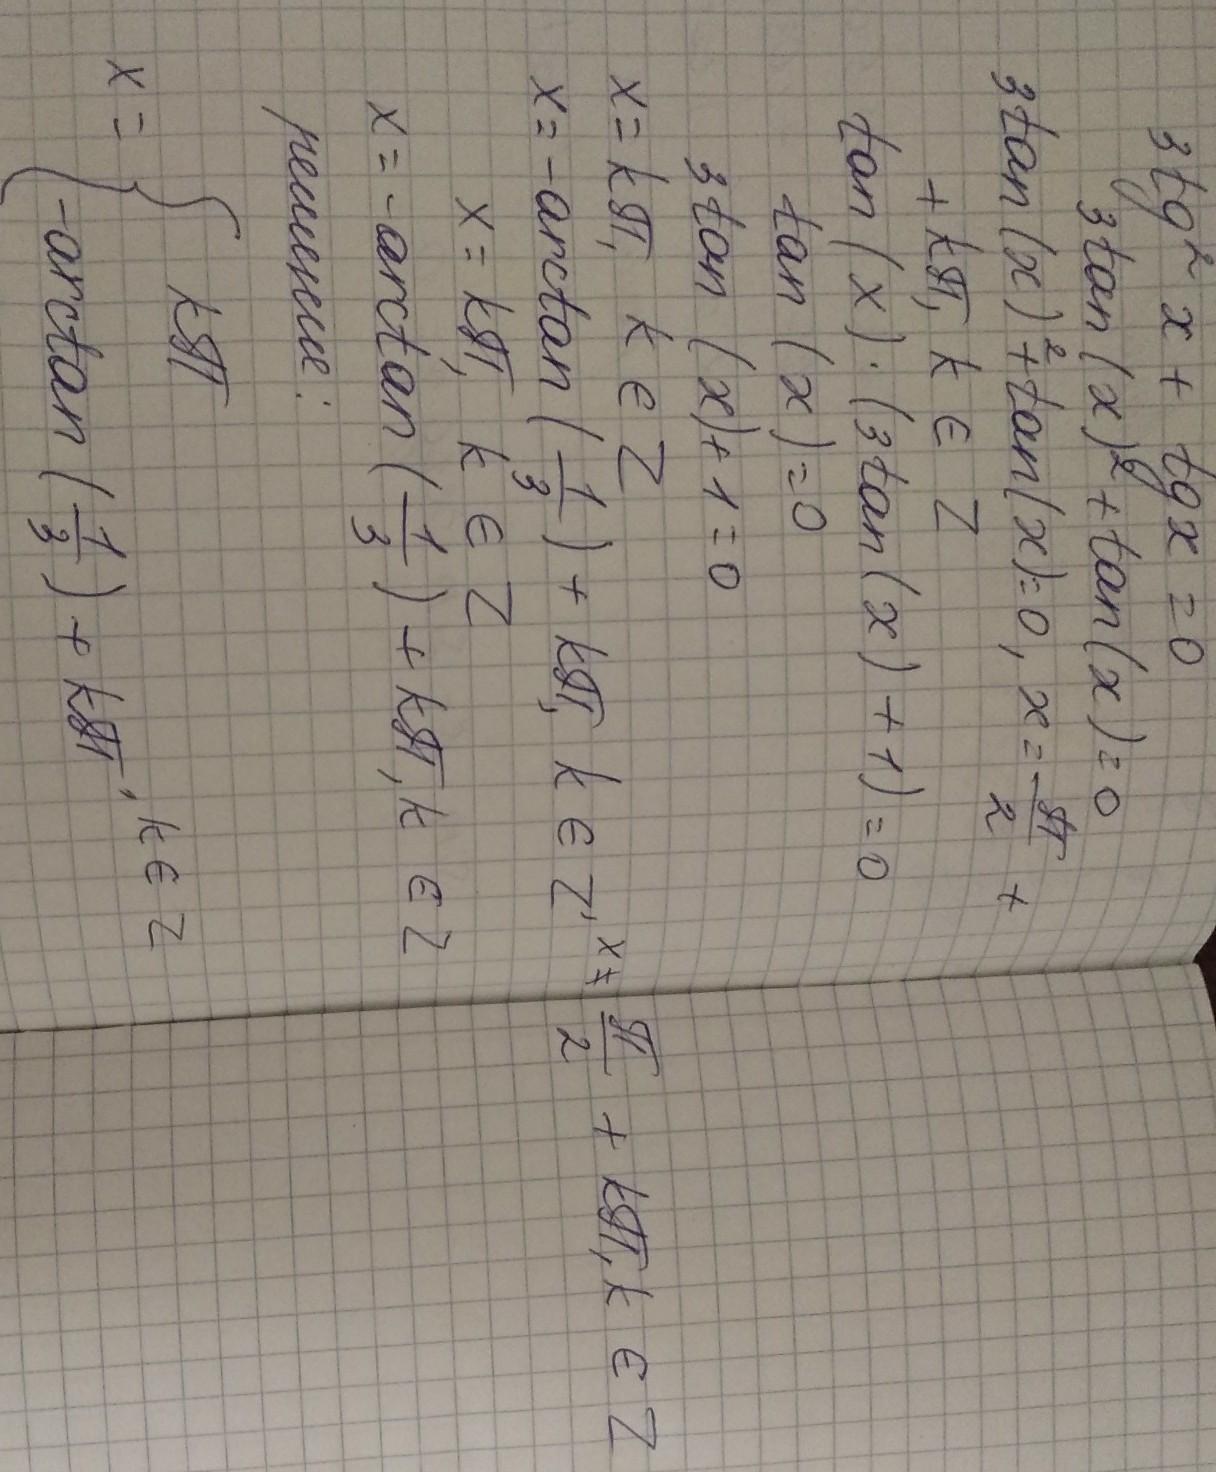 3tg² x + tg x = 0
3tan(x)² + tan(x) = 0
3tan(x)² + tan(x) = 0, x = π/2 +
+ kπ, k ∈ Z
tan(x) · (3tan(x) + 1) = 0
tan(x) = 0
3tan(x) + 1 = 0
x = kπ, k ∈ Z
x = -arctan(1/3) + kπ, k ∈ Z, x ≠ π/2 + kπ, k ∈ Z
x = kπ, k ∈ Z
x = -arctan(1/3) + kπ, k ∈ Z
решение:
x = { kπ
-arctan(1/3) + kπ, k ∈ Z